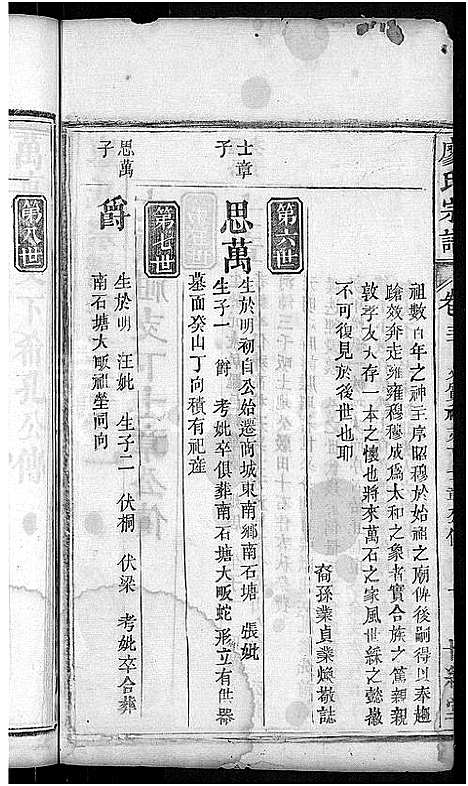 廖氏宗譜
祖數百年之神主序昭穆於始祖之廟俾後嗣得以奉趨
蹌效奔走雍雍穆穆咸為太和之象者實合族之篤親親
敦孝友大存一本之懷也將來萬石之家風世綵之懿徽
不可復見於後世也耶
裔孫業貞業燦敬誌
第六世
士章子
思萬
生於明初自公始遷前城東南鄉南石塘 張妣
生子一 爵 考妣卒俱葬南石塘大畈蛇形立有世器
墓面癸山丁向積有祀產
第七世
思萬子
爵
生於明 汪妣 生子二 伏桐 伏梁 考妣卒合葬
南石塘大畈祖塋同向
第八世